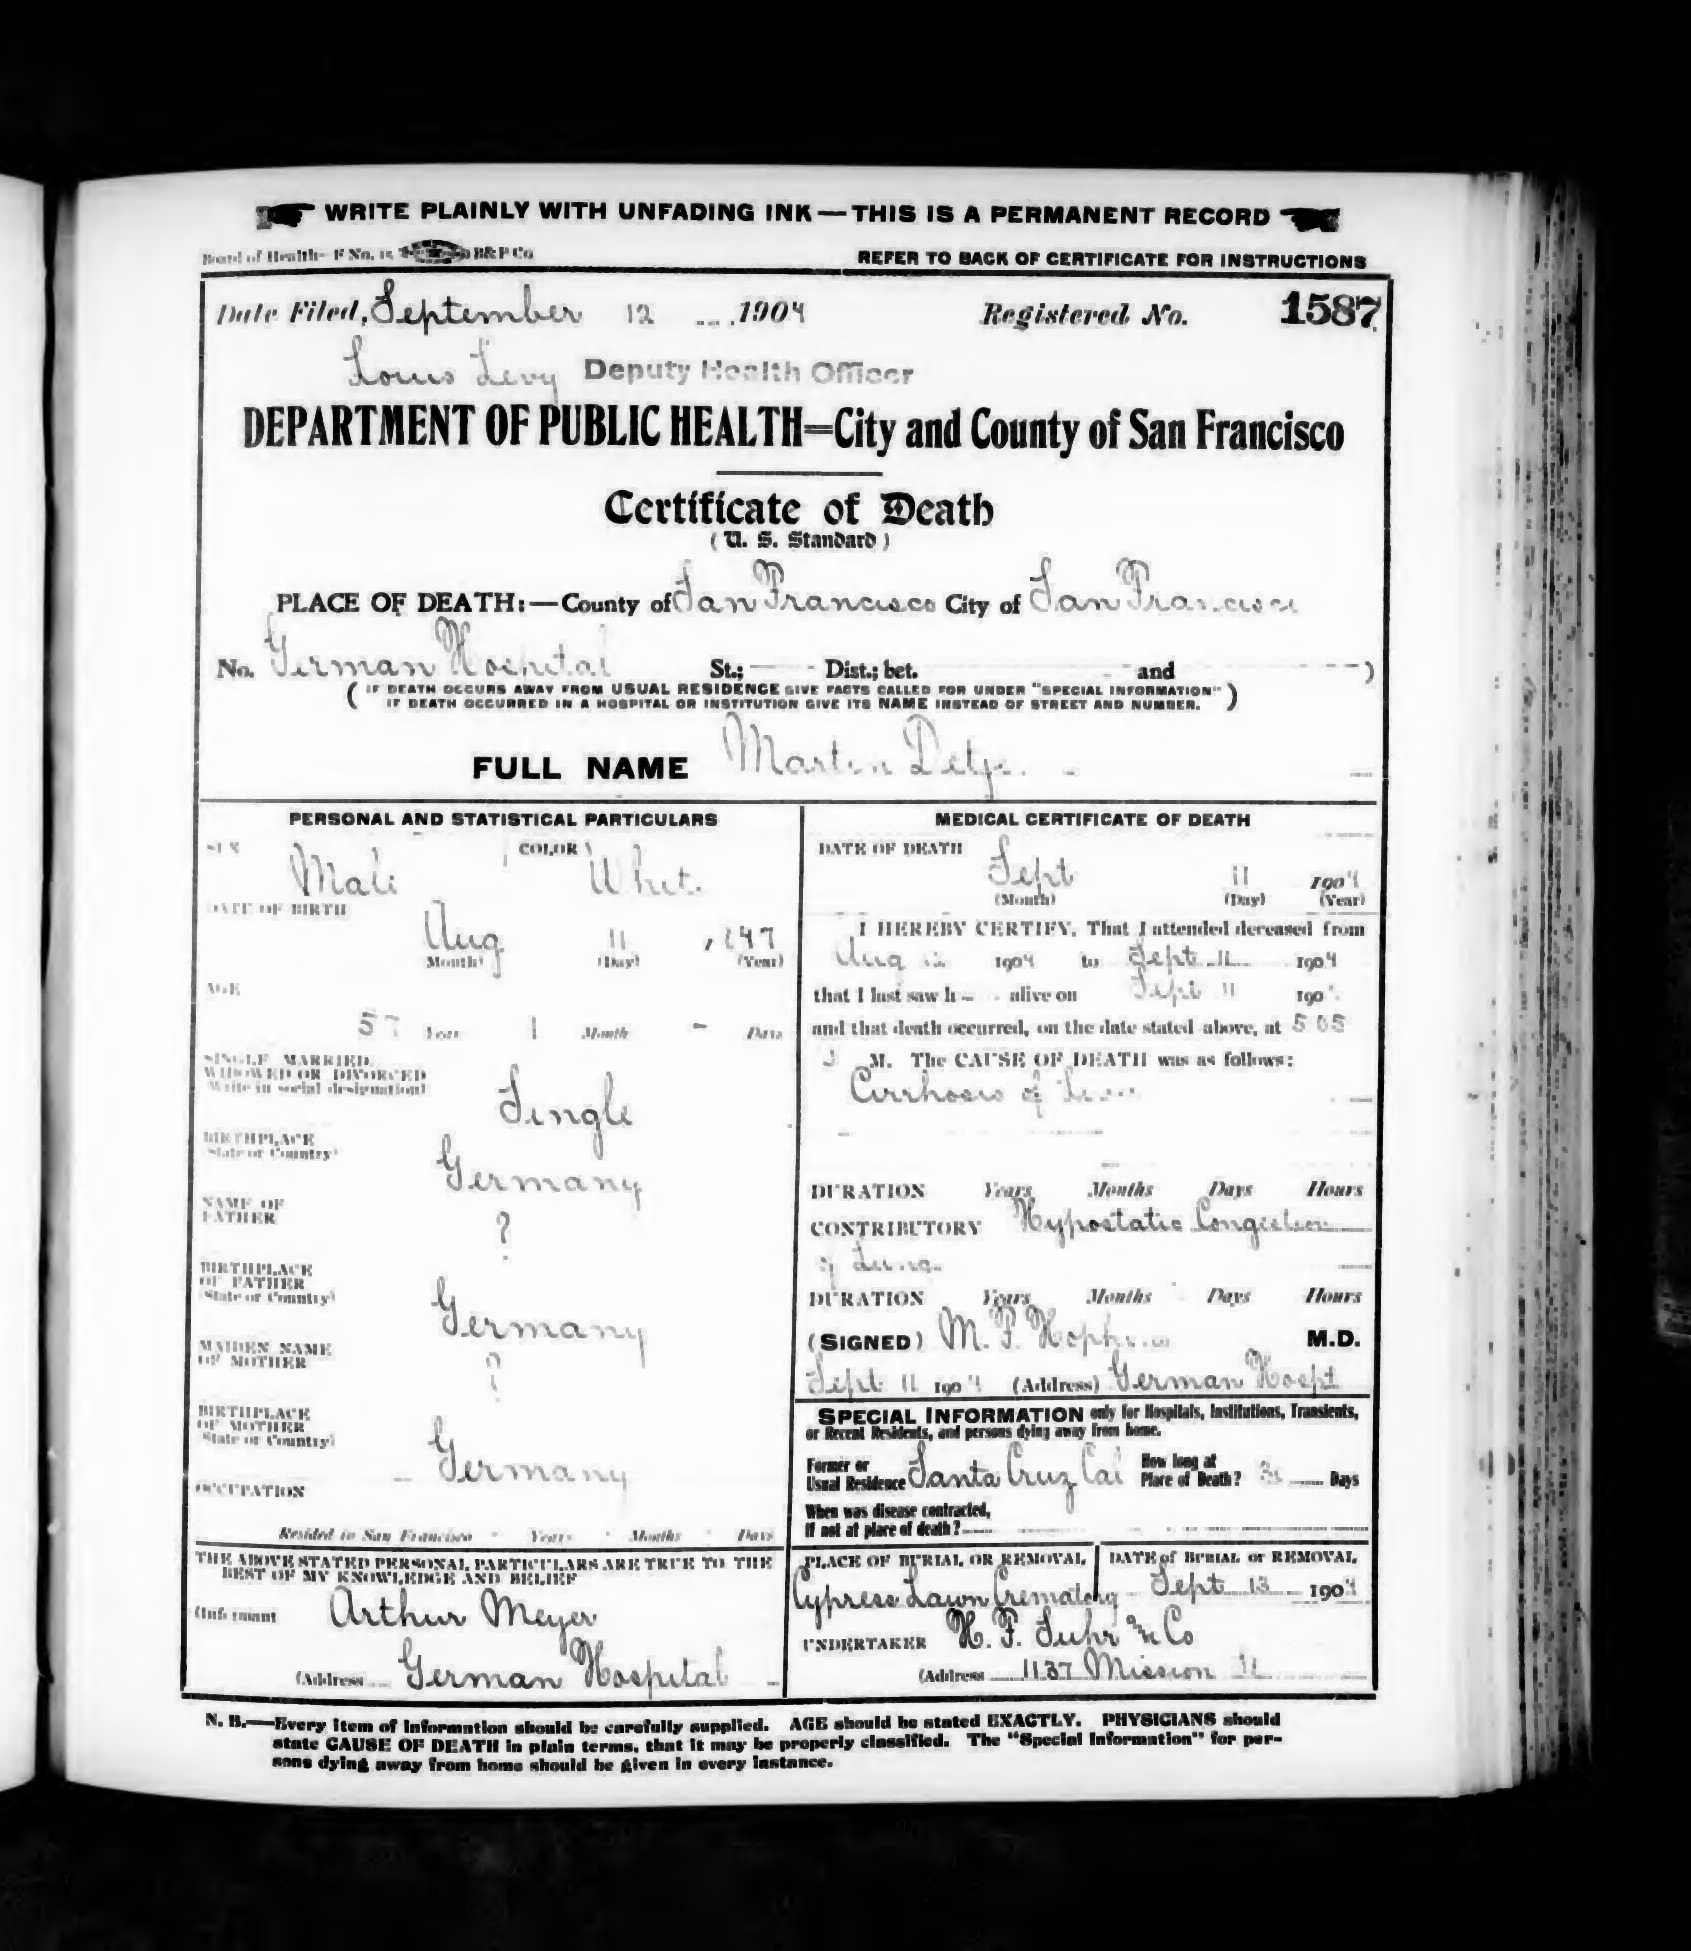 WRITE PLAINLY WITH UNFADING INK—THIS IS A PERMANENT RECORD
Board of Health—F No. 15 B&P Co
REFER TO BACK OF CERTIFICATE FOR INSTRUCTIONS
Date Filed, September 12 1904 Registered No. 1587
Louis Levy Deputy Health Officer
DEPARTMENT OF PUBLIC HEALTH=City and County of San Francisco
Certificate of Death
(U. S. Standard)
PLACE OF DEATH:—County of San Francisco City of San Francisco
No. German Hospital St.; Dist.; bet. and )
( IF DEATH OCCURS AWAY FROM USUAL RESIDENCE GIVE FACTS CALLED FOR UNDER "SPECIAL INFORMATION" )
IF DEATH OCCURRED IN A HOSPITAL OR INSTITUTION GIVE ITS NAME INSTEAD OF STREET AND NUMBER.
FULL NAME Martin Detje
PERSONAL AND STATISTICAL PARTICULARS
SEX Male COLOR White
DATE OF BIRTH
Aug 11 , 1847
(Month) (Day) (Year)
AGE
57 Years 1 Month - Days
SINGLE MARRIED,
WIDOWED OR DIVORCED
(Write in social designation)
Single
BIRTHPLACE
(State or Country)
Germany
NAME OF
FATHER
?
BIRTHPLACE
OF FATHER
(State or Country)
Germany
MAIDEN NAME
OF MOTHER
?
BIRTHPLACE
OF MOTHER
(State or Country)
Germany
OCCUPATION
Resided in San Francisco Years Months Days
THE ABOVE STATED PERSONAL PARTICULARS ARE TRUE TO THE
BEST OF MY KNOWLEDGE AND BELIEF
(Informant Arthur Meyer
(Address German Hospital
MEDICAL CERTIFICATE OF DEATH
DATE OF DEATH
Sept 11 1904
(Month) (Day) (Year)
I HEREBY CERTIFY, That I attended deceased from
Aug 12 1904 to Sept 11 1904
that I last saw h alive on Sept 11 190
and that death occurred, on the date stated above, at 5 05
M. The CAUSE OF DEATH was as follows:
Cirrhosis of Liver
DURATION Years Months Days Hours
CONTRIBUTORY Hypostatic Congestion
of Lung
DURATION Years Months Days Hours
(SIGNED) M. F. Hopkins M.D.
Sept 11 1904 (Address) German Hospt
SPECIAL INFORMATION only for Hospitals, Institutions, Transients,
or Recent Residents, and persons dying away from home.
Former or
Usual Residence Santa Cruz Cal
How long at
Place of Death? Days
When was disease contracted,
If not at place of death?
PLACE OF BURIAL OR REMOVAL
Cypress Lawn Crematory
DATE of BURIAL or REMOVAL
Sept 13 1904
UNDERTAKER H. F. Suhr & Co
(Address 1137 Mission
N. B.—Every item of information should be carefully supplied. AGE should be stated EXACTLY. PHYSICIANS should
state CAUSE OF DEATH in plain terms, that it may be properly classified. The "Special Information" for per-
sons dying away from home should be given in every instance.